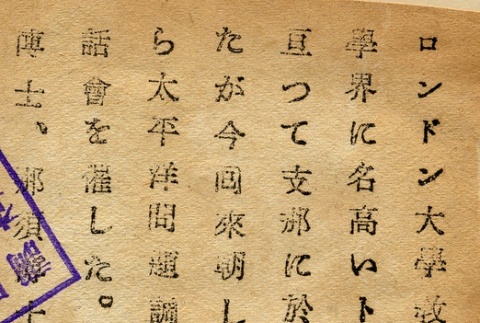 ロンドン大學教
學界に名高いト
亘つて支那に於
たが今回來朝し
ら太平洋問題調
話會を催した。
博士、那須博士